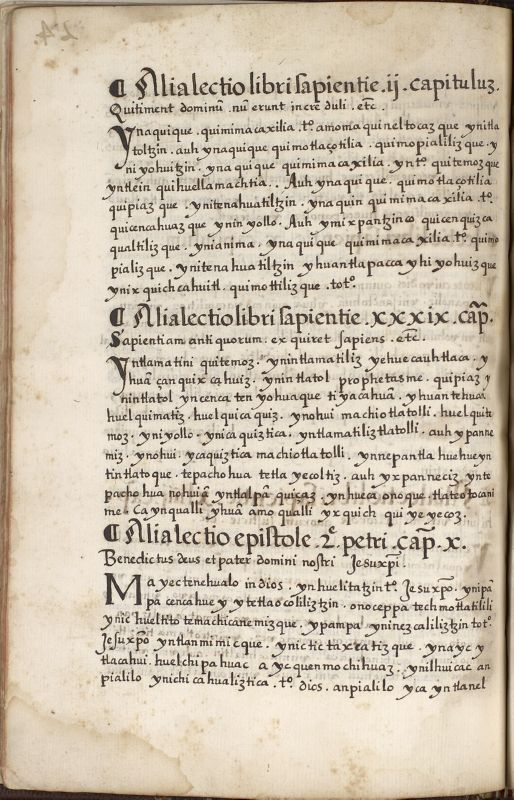 ¶ Alia lectio libri sapientie .ij. capituluz.
Qui timent dominū . nū erunt incrē duli . etc̄ .
Ynaquique . quimimacaxilia . t.º amo ma quineltocaz que ynitla
toltzin . auh ynaquique quimotlaçotilia . quimopialiliz que . y
ni yohuitzin . yna qui que quimimacaxilia . yn t.º quitemoz que
yntlein quihuellamachtia . . Auh yna qui que . quimotlaçotilia
quipiaz que . ynitenahuatiltzin . ynaquin quimimacaxilia . t.º
quicencahuaz que ynin yollo . Auh ymixpantzinco quicenquizca
qualtiliz que . ynianima . yna qui que quimimacaxilia . t.º quimo
pializ que . ynitenahuatiltzin yhuan tlapacca yhiyohuiz que
ynixquich cahuitl . quimottiliz que . tot.º
¶ Alia lectio libri sapientie . xxxix . cap̄.
Sapientiam anti quorum . exquiret sapiens . etc̄ .
Yntlamatini quitemoz . ynintlamatiliz yehuecauhtlaca . y
huā çan quixcahuiz . ynintlatol prophetasme . quipiaz y
nintlatol yncenca tenyohuaque tiyacahuā . yhuan tehuā
huel quimatiz . huel quicaquiz . ynohui machiotlatolli . huel quite
moz . yniyollo . ynica quiztica . yntlamatiliztlatolli . auh ypanne
miz . ynohui . ycaquiztica machiotlatolli , ynnepantla huehueyn
tin tlatoque . tepachohua tetlayecoltiz . auh yxpanneciz ynte
pachohua nohuiā yntlalpā quiçaz . ynhueca onoque . tlateotocani
me . ca ynqualli yhuā amo qualli yxquich qui yeyecoz .
¶ Alia lectio epistole . 2ᵉ. petri . cap̄. x.
Benedictus deus et pater domini nostri Jesuxp̄i .
Ma yectenehualo in dios . ynhuelitatzin t.º Jesuxp̄o . ynipā
pa cenca huey ytetlaocoliliztzin . onoceppa techmotlatilili
ynic hueltito temachicanemizque , ypampa , yninezcaliliztzin tot.º
Jesuxp̄o yntlan mimicque , ynictictaxeatizque , yn ayc y
tlacahui . huelchipahuac ayc quenmochihuaz , ynilhuicac an
pialilo ynichicahualiztica . t.º dios . anpialilo yca yntlanel